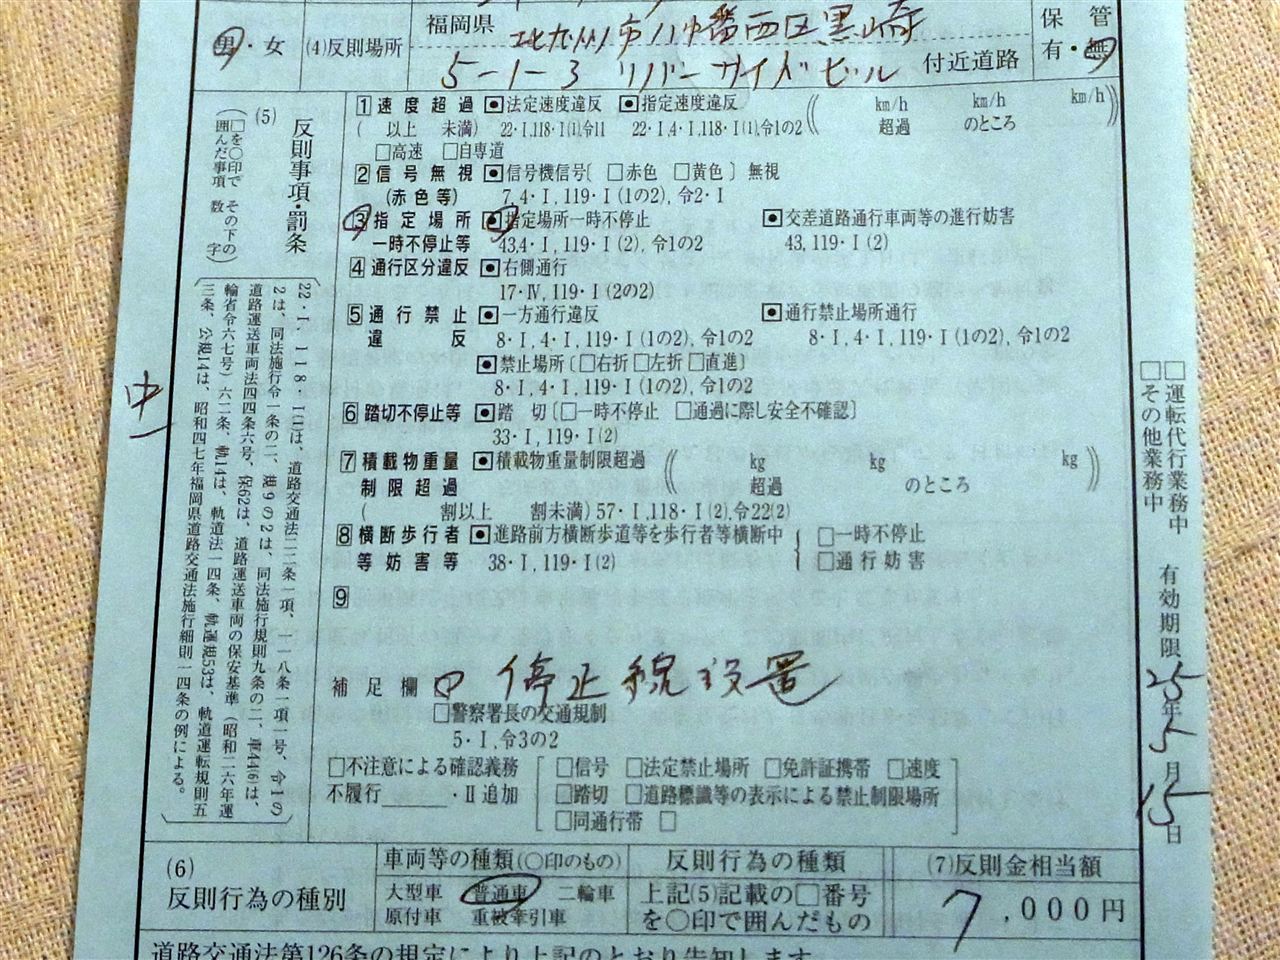 男・女 (4)反則場所 福岡県 北九州市八幡西区黒崎
5-1-3 リバーサイドビル 付近道路
保管
有・無
(5) 反則事項・罰条
(□を○印で囲んだ事項 その下の数字)
22・I, 118・I(1)は、道路交通法二二条一項、一一八条一項一号、令1の
2は、同法施行令一条の二、規9の2は、同法施行規則九条の二、車44(6)は、
道路運送車両法四四条六号、保62は、道路運送車両の保安基準(昭和二六年運
輸省令六七号)六二条、軌14は、軌道法一四条、軌運規53は、軌道運転規則五
三条、公規14は、昭和四七年福岡県道路交通法施行細則一四条の例による。
1 速度超過 法定速度違反 指定速度違反 km/h km/h km/h
( 以上 未満) 22・I,118・I(1),令11 22・I,4・I,118・I(1),令1の2 超過 のところ
□高速 □自専道
2 信号無視 信号機信号〔 □赤色 □黄色 〕無視
(赤色等) 7, 4・I, 119・I(1の2), 令2・I
3 指定場所 指定場所一時不停止 交差道路通行車両等の進行妨害
一時不停止等 43,4・I, 119・I(2), 令1の2 43, 119・I(2)
4 通行区分違反 右側通行
17・IV, 119・I(2の2)
5 通行禁止 一方通行違反 通行禁止場所通行
違反 8・I, 4・I, 119・I(1の2), 令1の2 8・I, 4・I, 119・I(1の2), 令1の2
禁止場所〔□右折 □左折 □直進〕
8・I, 4・I, 119・I(1の2), 令1の2
6 踏切不停止等 踏切〔□一時不停止 □通過に際し安全不確認〕
33・I, 119・I(2)
7 積載物重量 積載物重量制限超過 kg kg kg
制限超過 超過 のところ
( 割以上 割未満) 57・I, 118・I(2), 令22(2)
8 横断歩行者 進路前方横断歩道等を歩行者等横断中 □一時不停止
等妨害等 38・I, 119・I(2) □通行妨害
9
補足欄 停止線設置
□警察署長の交通規制
5・I, 令3の2
□不注意による確認義務 □信号 □法定禁止場所 □免許証携帯 □速度
不履行 ・II追加 □踏切 □道路標識等の表示による禁止制限場所
□同通行帯 □
中
□運転代行業務中
□その他業務中
有効期限 25年5月15日
(6) 反則行為の種別
車両等の種類(○印のもの) 反則行為の種類 (7)反則金相当額
大型車 普通車 二輪車 上記(5)記載の□番号 7,000円
原付車 重被牽引車 を○印で囲んだもの
道路交通法第126条の規定により上記のとおり告知します